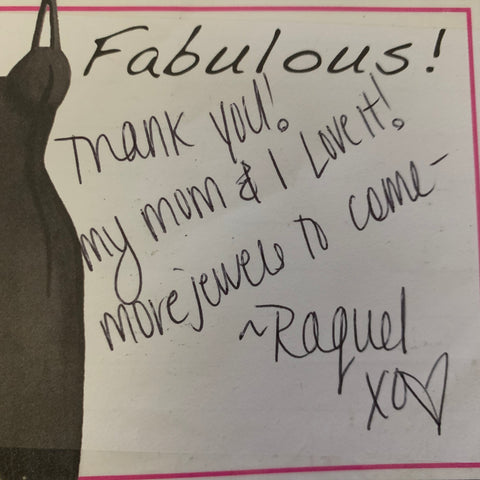 Fabulous!
Thank you!
my mom & I Love it!
more jewels to come -
~Raquel
XO♡